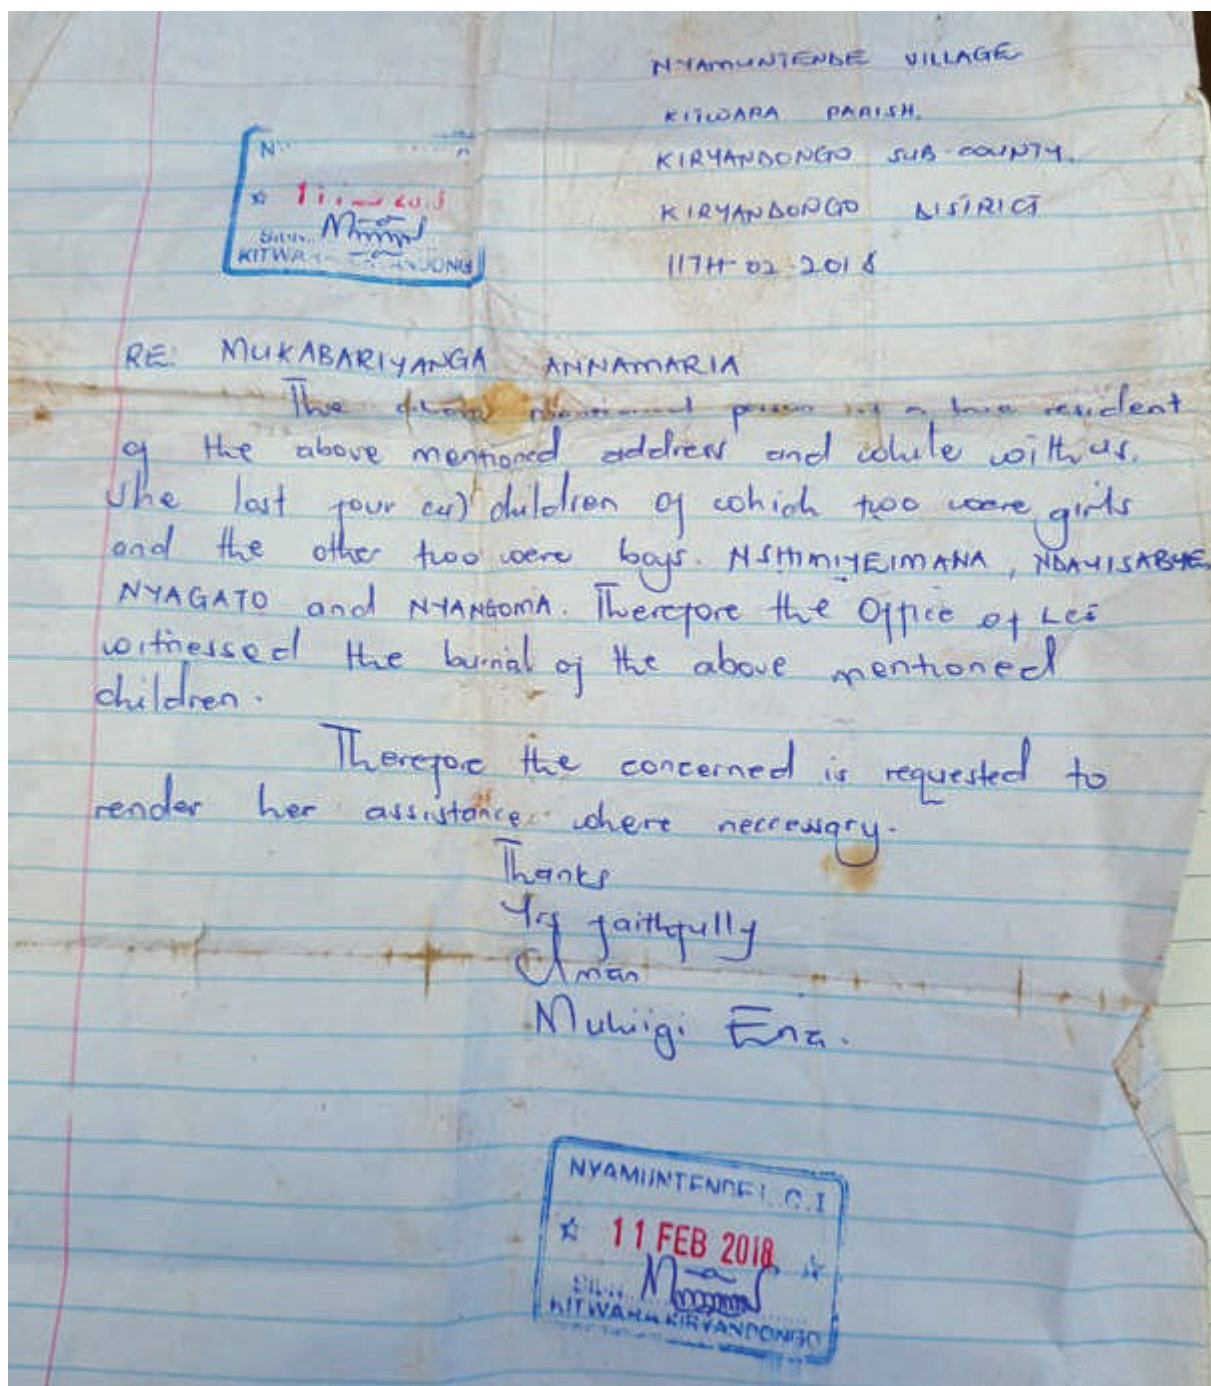 NYAMUNTENDE VILLAGE
KITWARA PARISH.
KIRYANDONGO SUB-COUNTY.
KIRYANDONGO DISTRICT
11TH-02-2018
KITWARA
RE: MUKABARIYANGA ANNAMARIA
The above mentioned person is a true resident
of the above mentioned address and while with us.
She lost four (4) children of which two were girls
and the other two were boys. NSHIMIYEIMANA, NDAYISABYE,
NYAGATO and NYANGOMA. Therefore the Office of LCI
witnessed the burial of the above mentioned
children.
Therefore the concerned is requested to
render her assistance where neccessary.
Thanks
Yrs faithfully
Cman
NYAMUNTENDE L.C.I
11 FEB 2018
KITWARA KIRYANDONGO